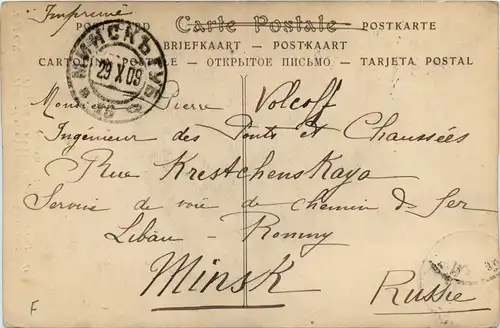 Imprimé
POST CARD — Carte Postale — POSTKARTE
BRIEFKAART — POSTKAART
CARTOLINA POSTALE — ОТКРЫТОЕ ПИСЬМО — TARJETA POSTAL
МИНСКЪ ГУБ
29 X 09
Monsieur Pierre Volcoff
Ingénieur des Ponts et Chaussées
Rue Krestchenskaya
Service de voie de chemin de fer
Libau-Romny
Minsk
Russie
F